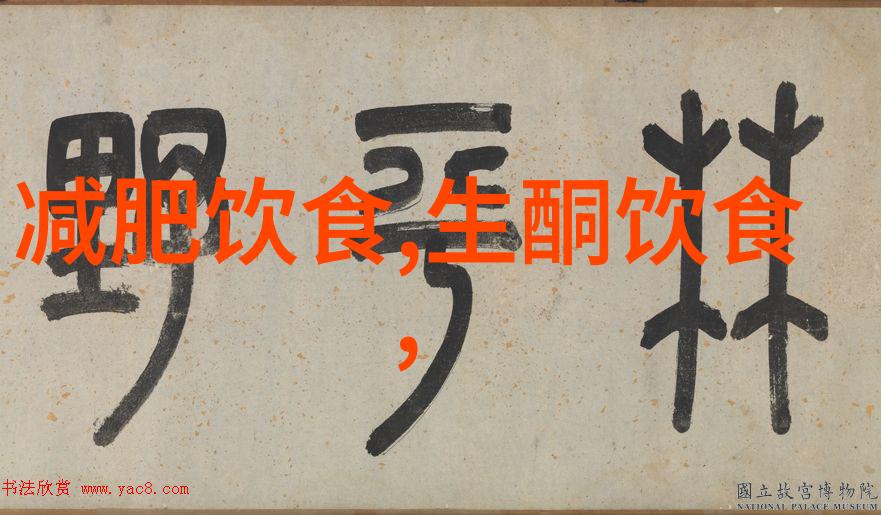 林平野
减肥饮食,生酮饮食
,
书法欣赏 www.yac8.com
國立故宮博物院
NATIONAL PALACE MUSEUM